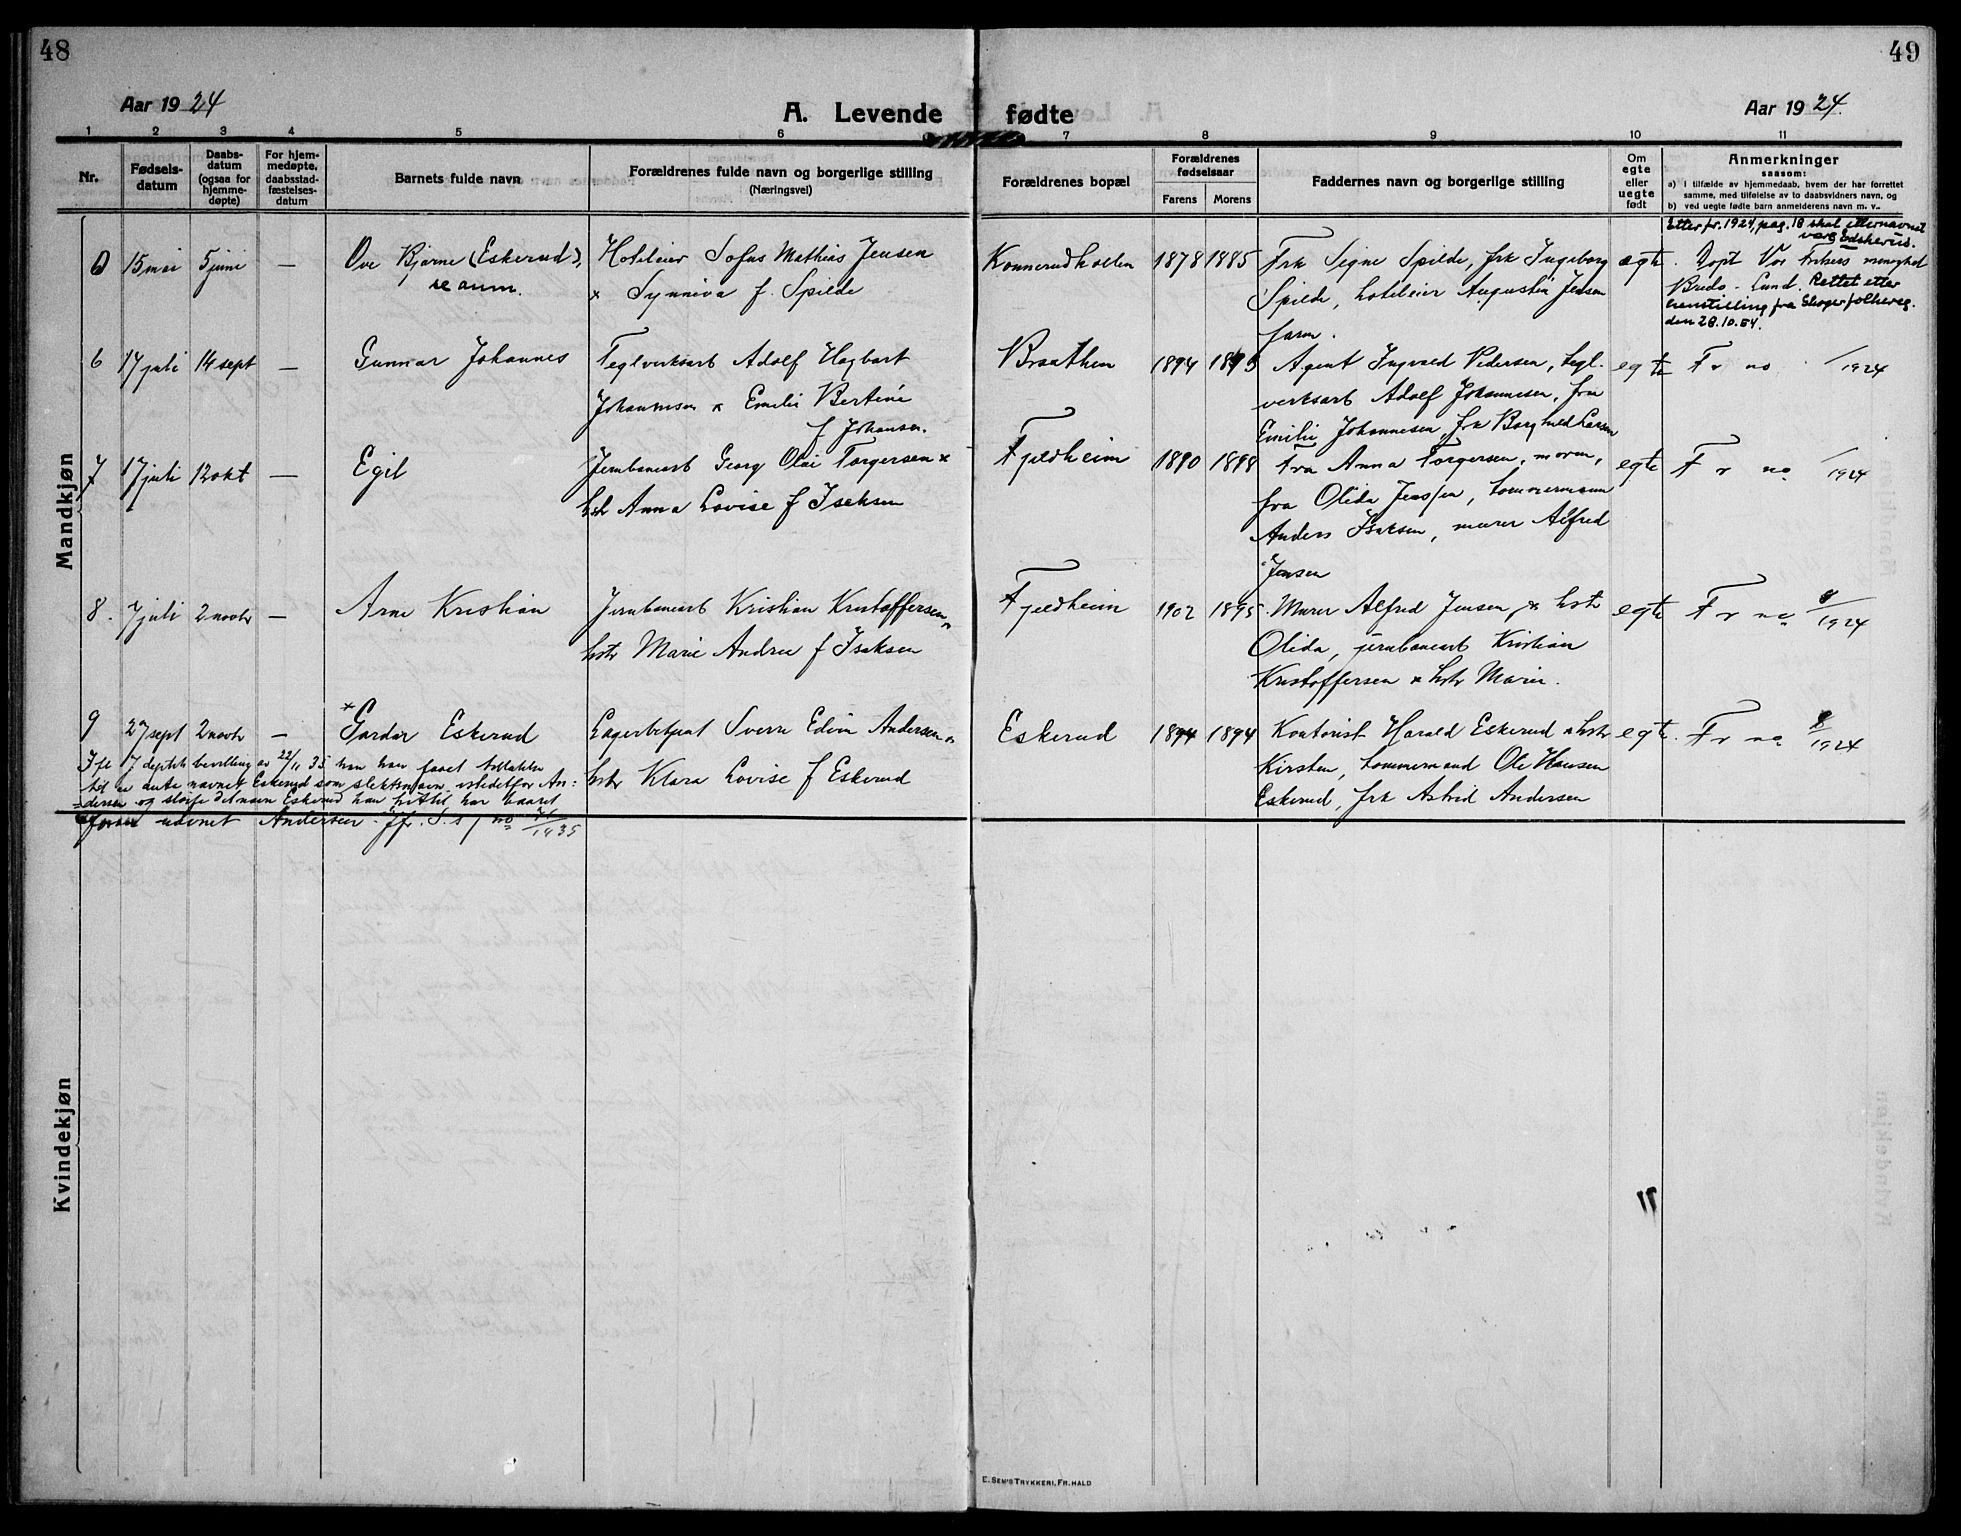 48
49
Aar 1924
A. Levende fødte
Aar 1924.
1 2 3 4 5 6 7 8 9 10 11
Nr.
Fødsels-
datum
Daabs-
datum
(ogsaa for
hjemme-
døpte)
For hjem-
medøpte,
daabsstad-
fæstelses-
datum
Barnets fulde navn
Forældrenes fulde navn og borgerlige stilling
(Næringsvei)
Forældrenes bopæl
Forældrenes
fødselsaar
Farens Morens
Faddernes navn og borgerlige stilling
Om
egte
eller
uegte
født
Anmerkninger
saasom:
a) i tilfælde av hjemmedaab, hvem der har forrettet
samme, med tilføielse av to daabsvidners navn, og
b) ved uegte fødte barn anmelderens navn m. v..
Mandkjøn
15 mai 5 juni —
Ove Bjarne (Eskerud),
Hoteleier Sofus Mathias Jensen
x Synnøva f. Spilde
Konnerudkollen 1878 1885
Frk Signe Spilde, frk Ingeborg
Spilde, hoteleier Augustin Jensen
faren.
egte.
Etter fr. 1924, pag. 18 skal etternavnet
være Edskerud.
Døpt Vor Frelsers menighet
Bredo - Lund. Rettet etter
henstilling fra Skoger folkereg.
den 28.10.54.
6 17 juli 14 sept —
Gunnar Johannes
Teglverksarb Adolf Hagbart
Johannesen x Emilie Bertine
f Johansen.
Braathen 1894 1895
Agent Ingvald Pedersen, tegl.
verksarb Adolf Johannesen, fru
Emilie Johannesen, frk Borghild Larsen
egte F r no /1924
7 17 juli 12 okt —
Egil
Jernbanearb Georg Olai Torgersen x
hstr Anna Lovise f Isaksen
Fjeldheim 1890 1898
Fru Anna Torgersen, moren,
fru Olida Jensen, tømmermann
Anders Isaksen, murer Alfred
Jensen
egte F r no /1924
8. 7 juli 2 novbr —
Arne Kristian
Jernbanearb Kristian Kristoffersen x
hstr Marie Andrea f Isaksen
Fjeldheim 1902 1895.
Murer Alfred Jensen x hstr
Olida, jernbanearb Kristian
Kristoffersen x hstr Marie.
egte F r no 9/1924
9 27 sept 2 novbr —
*Gardar Eskerud
Lagerbetjent Sverre Edvin Andersen x
hstr Klara Lovise f Eskerud
Eskerud 1894 1894
Kontorist Harald Eskerud x hstr
Kirsten, tømmermand Ole Hansen
Eskerud, frk Astrid Andersen
egte. F r no 8/1924
Ifl J deptets bevilling av 22/11 35 har han faaet tillatelse
til at anta navnet Eskerud som slektsnavn istedetfor An-
dersen og sløife det navn Eskerud han hittil har baaret
foran navnet Andersen. Jfr. S. s j no 71/1935
Kvindekjøn
E. Sem's Trykkeri, Fr. Hald